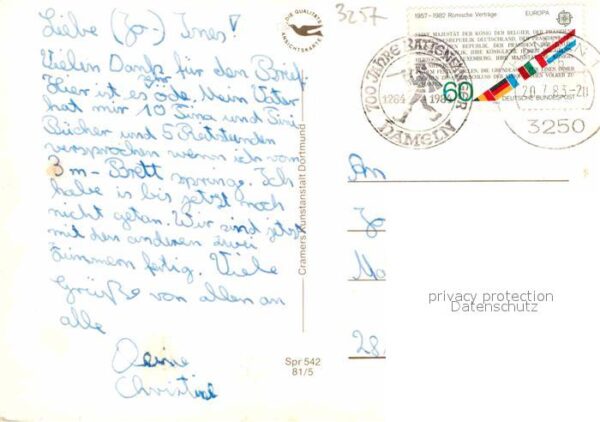 Liebe (Jo-) Ines!
Vielen Dank für den Brief.
Hier ist es zur öde. Mein Vater
hat mir 10 Tina und Sini
Bücher und 5 Reitstunden
versprochen wenn ich vom
3 m-Brett springe. Ich
habe is bis jetzt noch
nicht getan. Wir sind jetzt
mit den anderen zwei
Zimmern fertig. Viele
Grüße von allen an
alle
Deine
Christine
DIE QUALITÄTS
ANSICHTSKARTE
Cramers Kunstanstalt Dortmund
Spr 542
81/5
3257
1957-1982 Römische Verträge EUROPA
60 DEUTSCHE BUNDESPOST
700 JAHRE RATTENFÄNGER
1284 1984
HAMELN
20.7.83-20
3250
An
28.
privacy protection
Datenschutz